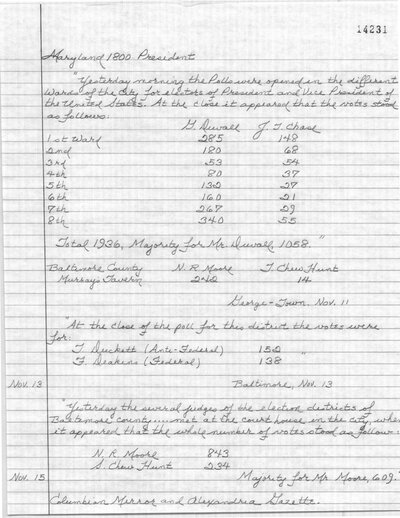 14231
Maryland 1800 President
"Yesterday morning the Polls were opened in the different
Wards of the City for electors of President and Vice President of
the United States. At the close it appeared that the votes stood
as follows:
G. Duvall J. T. Chase
1st Ward 285 148
2nd 180 68
3rd 53 54
4th 80 37
5th 132 27
6th 160 21
7th 267 29
8th 340 55
Total 1936, Majority for Mr. Duvall 1058."
Baltimore County N. R Moore T. Chew Hunt
Murrays Tavern 242 14
George-Town, Nov. 11
"At the close of the poll for this district the votes were
for:
T. Duckett (Anti-Federal) 152
F. Deakins (Federal) 138 "
Nov. 13 Baltimore, Nov. 13
"Yesterday the several judges of the election districts of
Baltimore county....met at the court house in the city, when
it appeared that the whole number of votes stood as follow:
N. R. Moore 843
S. Chew Hunt 234
Nov. 15 Majority for Mr Moore, 609."
Columbian Mirror and Alexandria Gazette.